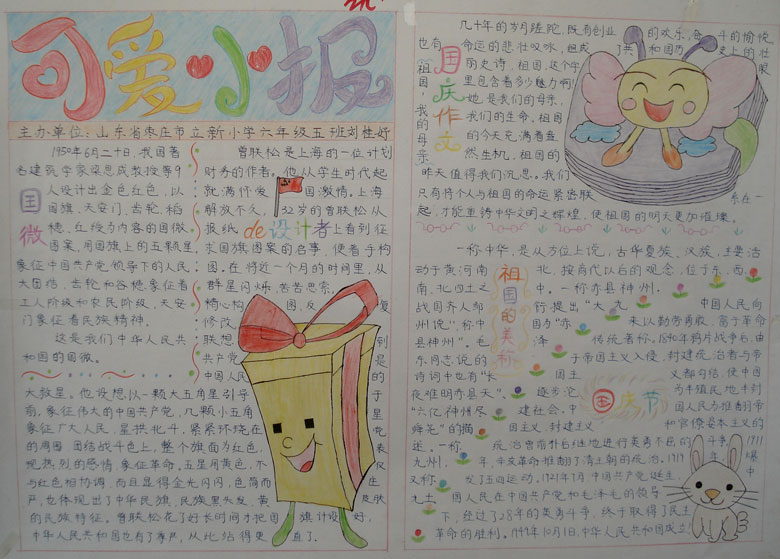 可爱小报
主办单位：山东省枣庄市立新小学六年级五班刘桂好
国徽
1950年6月二十日，我国著
名建筑学家梁思成教授等9
人设计出金色红色，以
国旗、天安门、齿轮、稻
穗、红绶为内容的国徽
图案，用国旗上的五颗星
象征中国共产党领导下的人民
大团结，齿轮和谷穗象征着
工人阶级和农民阶级，天安
门象征着民族精神。
这是我们中华人民共
和国的国徽。
国旗de设计者
曾联松是上海的一位计划
财务的作者。他从学生时代起
就满怀爱国激情。上海
解放不久，32岁的曾联松从
报纸上看到征
求国旗图案的启事，便着手构
图。在将近一个月的时间里，从
群星闪烁，苦苦思索，
精心构图，反复
修改
联想到
共产党是
中国人民的
大救星。他设想：以一颗大五角星引导于
前，象征伟大的中国共产党，几颗小五角星
象征广大人民，星拱北斗，紧紧环绕在党
的周围，团结战斗
色，整个旗面为红色，表
现热烈的感情，象征革命。五星用黄色，不仅
与红色相协调，而且显得金光闪闪，色简而庄
严，也体现出了中华民族，民族黑头发，黄皮肤
的民族特征。曾联松花了好长时间才把国旗计设好，
中华人民共和国也有了尊严，从此站得更直了。
国庆作文
几十年的岁月蹉跎，既有创业的欢乐，
斗的愉悦
也有命运的悲壮叹咏，组成了共和国历史上的壮
丽史诗，祖国，这个字眼
里包含着多少魅力啊！
祖国，她是我们的母亲，
我们的生命，祖国
我的母亲
的今天充满着盎
然生机，祖国的
昨天值得我们沉思。我们
只有将个人与祖国的命运紧密联系在一
起，才能重铸中华文明之辉煌，使祖国的明天更加璀璨。
祖国的美称
一称中华，是从方位上说，古华夏族、汉族，主要活
动于黄河南北，按商代以后的观念，位于东、西、
南、北四土之中。一称赤县神州，
战国齐人邹衍提出“大九
州说”，称中国为“赤
县神州”。毛泽
东同志说的
诗词中也有“长
夜难明赤县天”、
“六亿神州尽
舜尧”的描
述。一称
九州，
又称
九土。
国庆节
中国人民向
来以勤劳勇敢，富于革命
传统著称。1840年鸦片战争后，由
于帝国主义入侵，封建统治者与帝
国主义都勾结，使中国
逐步沦为半殖民地半封
建社会，中国人民为推翻帝
国主义、封建主义和官僚资本主义的
统治曾前扑后继地进行英勇不屈的斗争。1911
年，辛亥革命推翻了清王朝的统治。1919年，中爆
发了五四运动，1921年7月中国共产党诞生
国人民在中国共产党和毛泽东的领导
下，经过了28年的英勇斗争，终于取得了民主
革命的胜利。1949年10月1日，中华人民共和国成立！